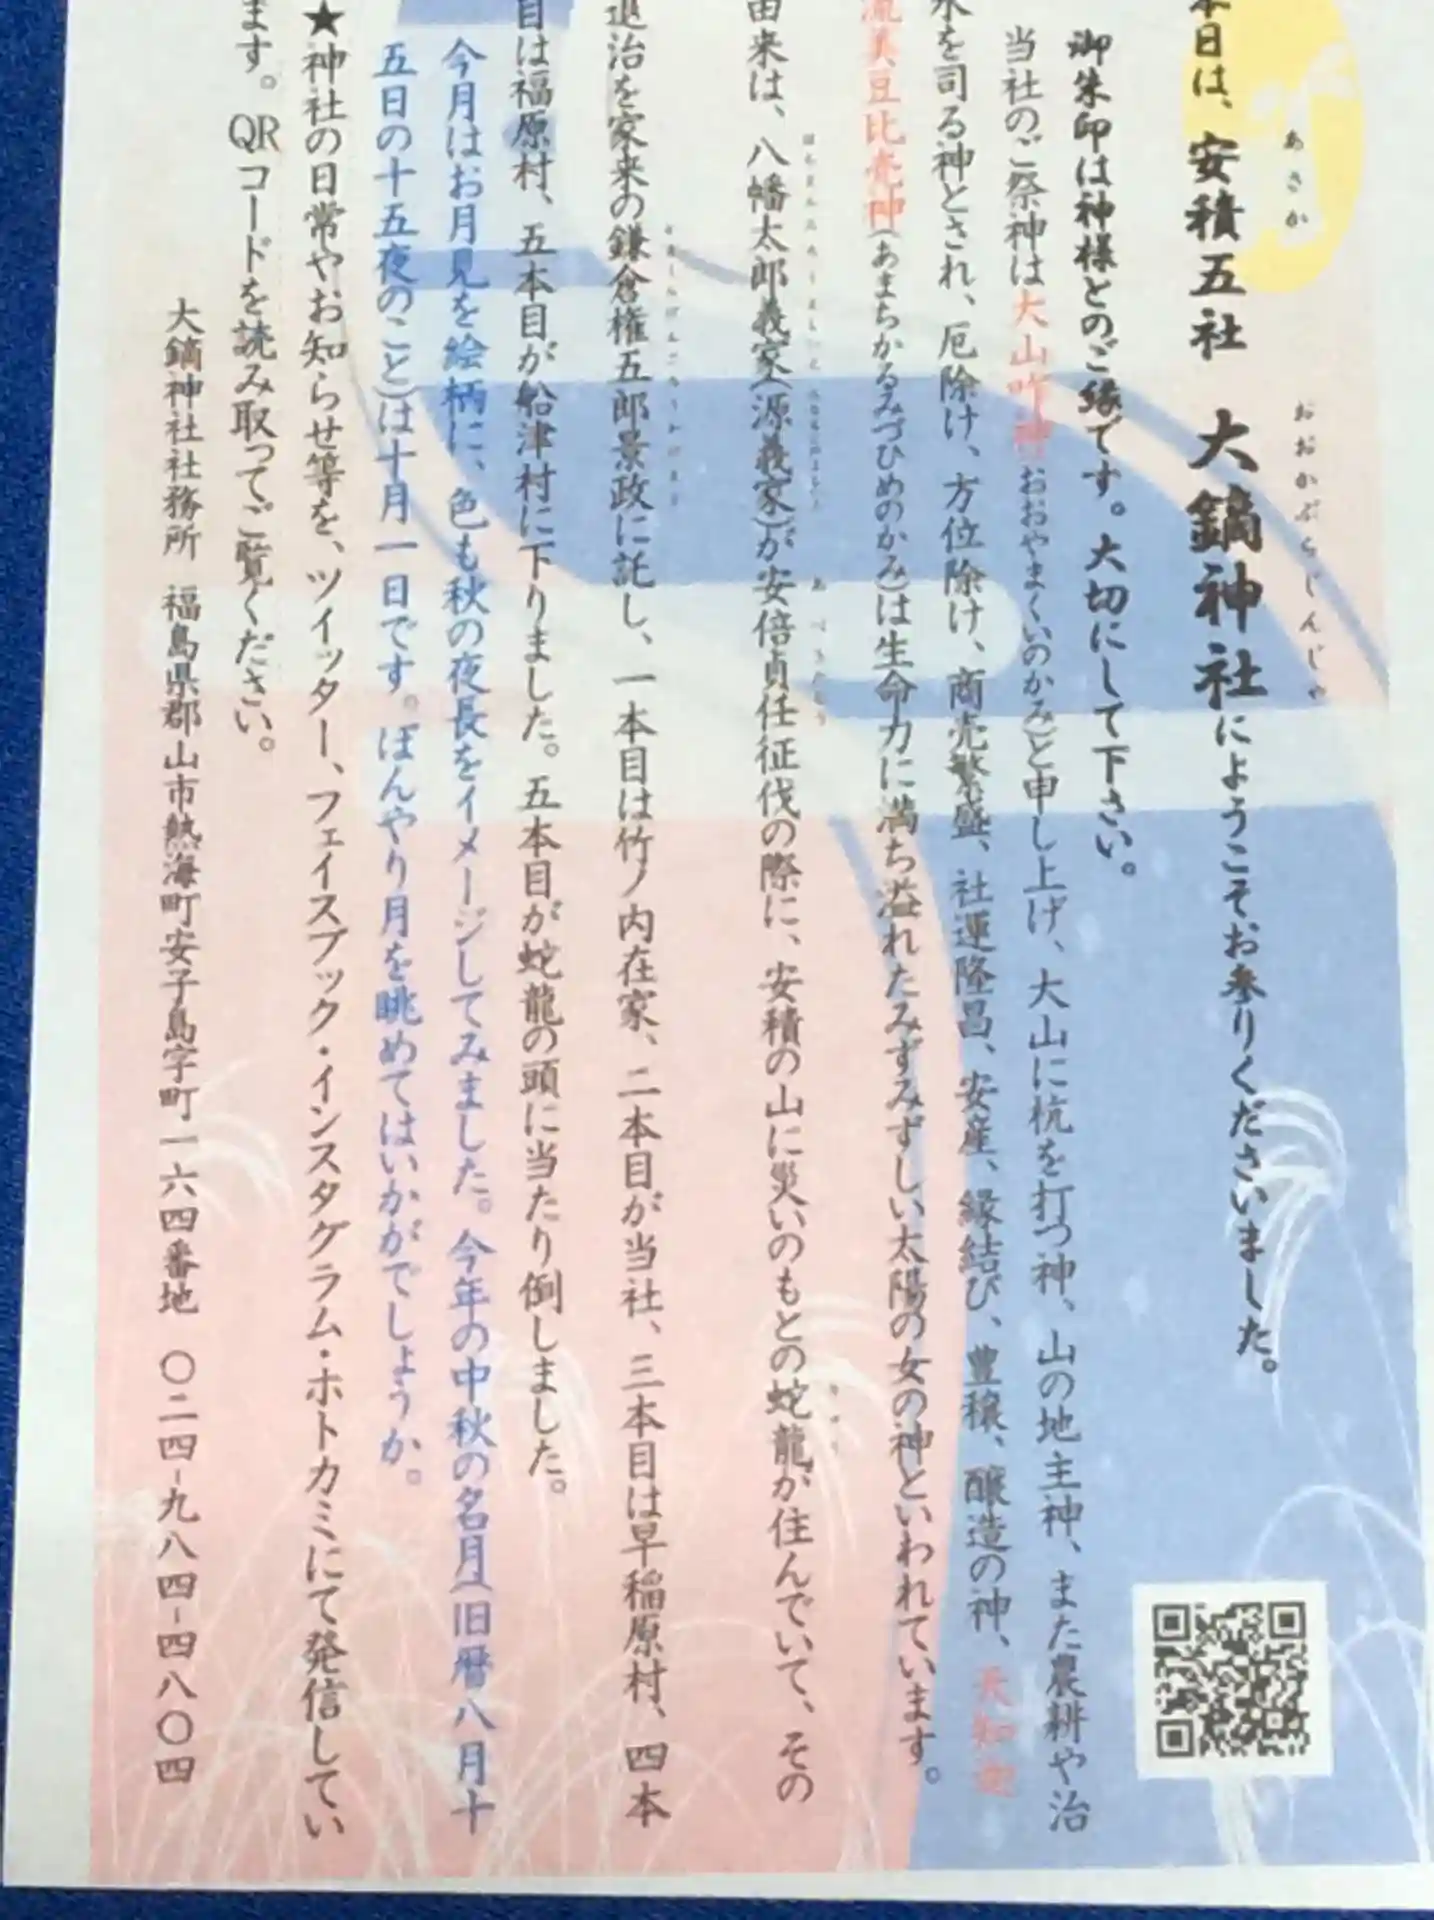 本日は、安積五社　大鏑神社にようこそお参りくださいました。
あさか
おおかぶらじんじゃ
御朱印は神様とのご縁です。大切にして下さい。
当社のご祭神は大山咋神(おおやまくいのかみ)と申し上げ、大山に杭を打つ神、山の地主神、また農耕や治
水を司る神とされ、厄除け、方位除け、商売繁盛、社運隆昌、安産、縁結び、豊穣、醸造の神、天知迦
流美豆比売神(あまちかるみづひめのかみ)は生命力に満ち溢れたみずみずしい太陽の女の神といわれています。
由来は、八幡太郎義家(源義家)が安倍貞任征伐の際に、安積の山に災いのもとの蛇龍が住んでいて、その
退治を家来の鎌倉権五郎景政に託し、一本目は竹ノ内在家、二本目が当社、三本目は早稲原村、四本
目は福原村、五本目が船津村に下りました。五本目が蛇龍の頭に当たり倒しました。
今月はお月見を絵柄に、色も秋の夜長をイメージしてみました。今年の中秋の名月(旧暦八月十
五日の十五夜のこと)は十月一日です。ぼんやり月を眺めてはいかがでしょうか。
★神社の日常やお知らせ等を、ツイッター、フェイスブック・インスタグラム・ホトカミにて発信してい
ます。QRコードを読み取ってご覧ください。
大鏑神社社務所　福島県郡山市熱海町安子島字町一六四番地　〇二四-九八四-四八〇四